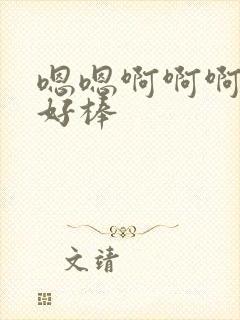 嗯嗯啊啊啊
好棒
文靖